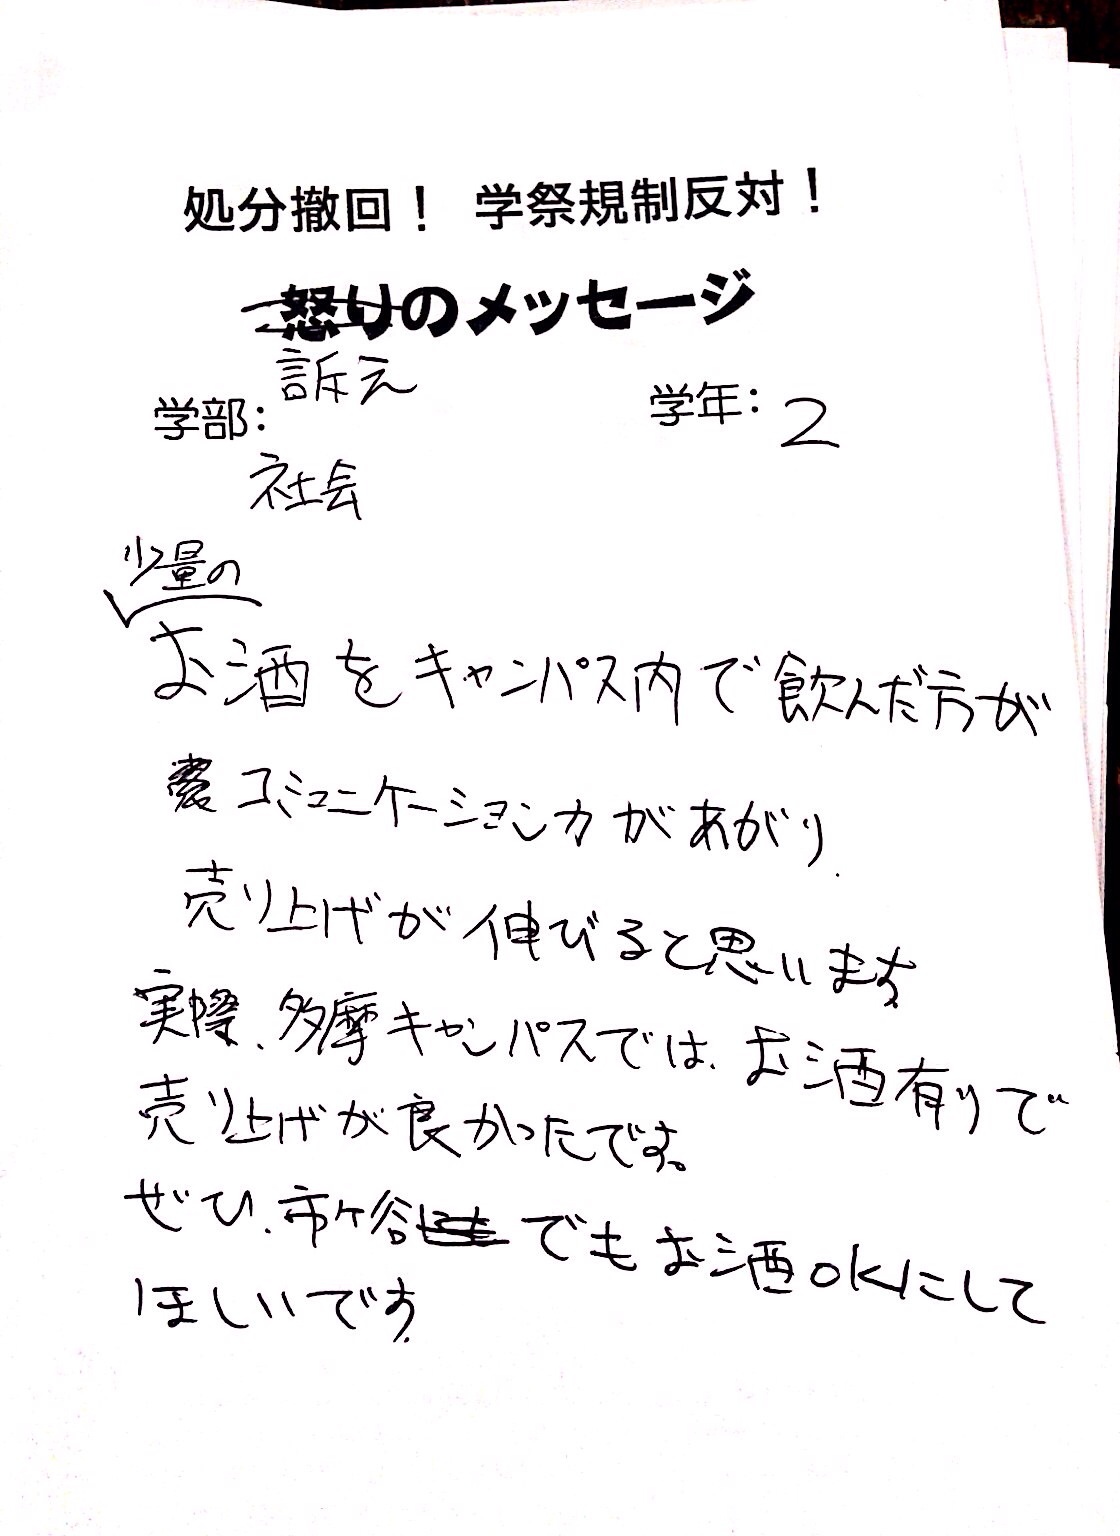 処分撤回！ 学祭規制反対！
怒りのメッセージ
訴え
学部： 学年：2
社会
少量の
お酒をキャンパス内で飲んだ方が
コミュニケーション力があがり、
売り上げが伸びると思います。
実際、多摩キャンパスでは、お酒有りで
売り上げが良かったです。
ぜひ、市ヶ谷でもお酒OKにして
ほしいです。